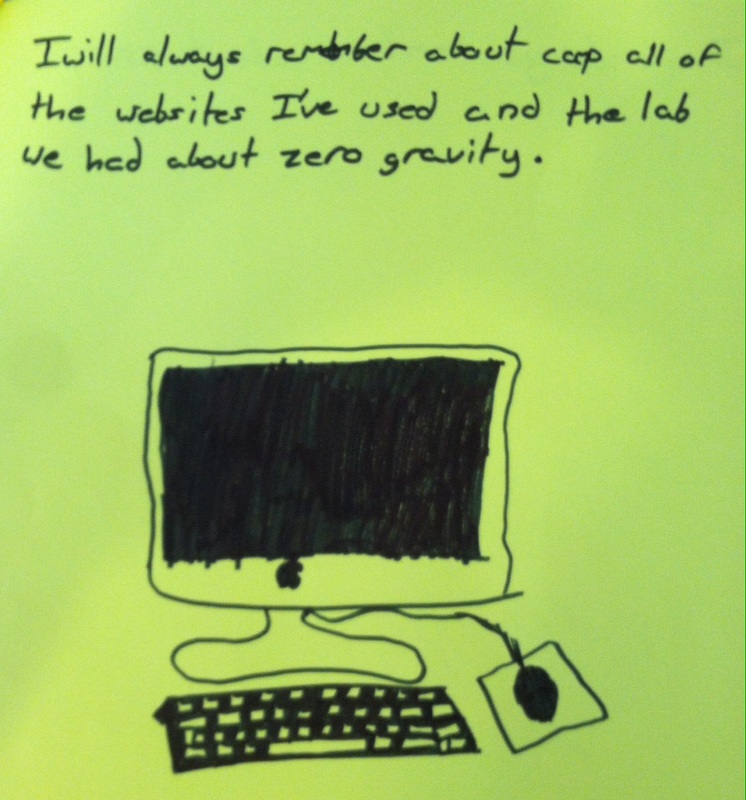 I will always remember about coop all of
the websites I've used and the lab
we had about zero gravity.